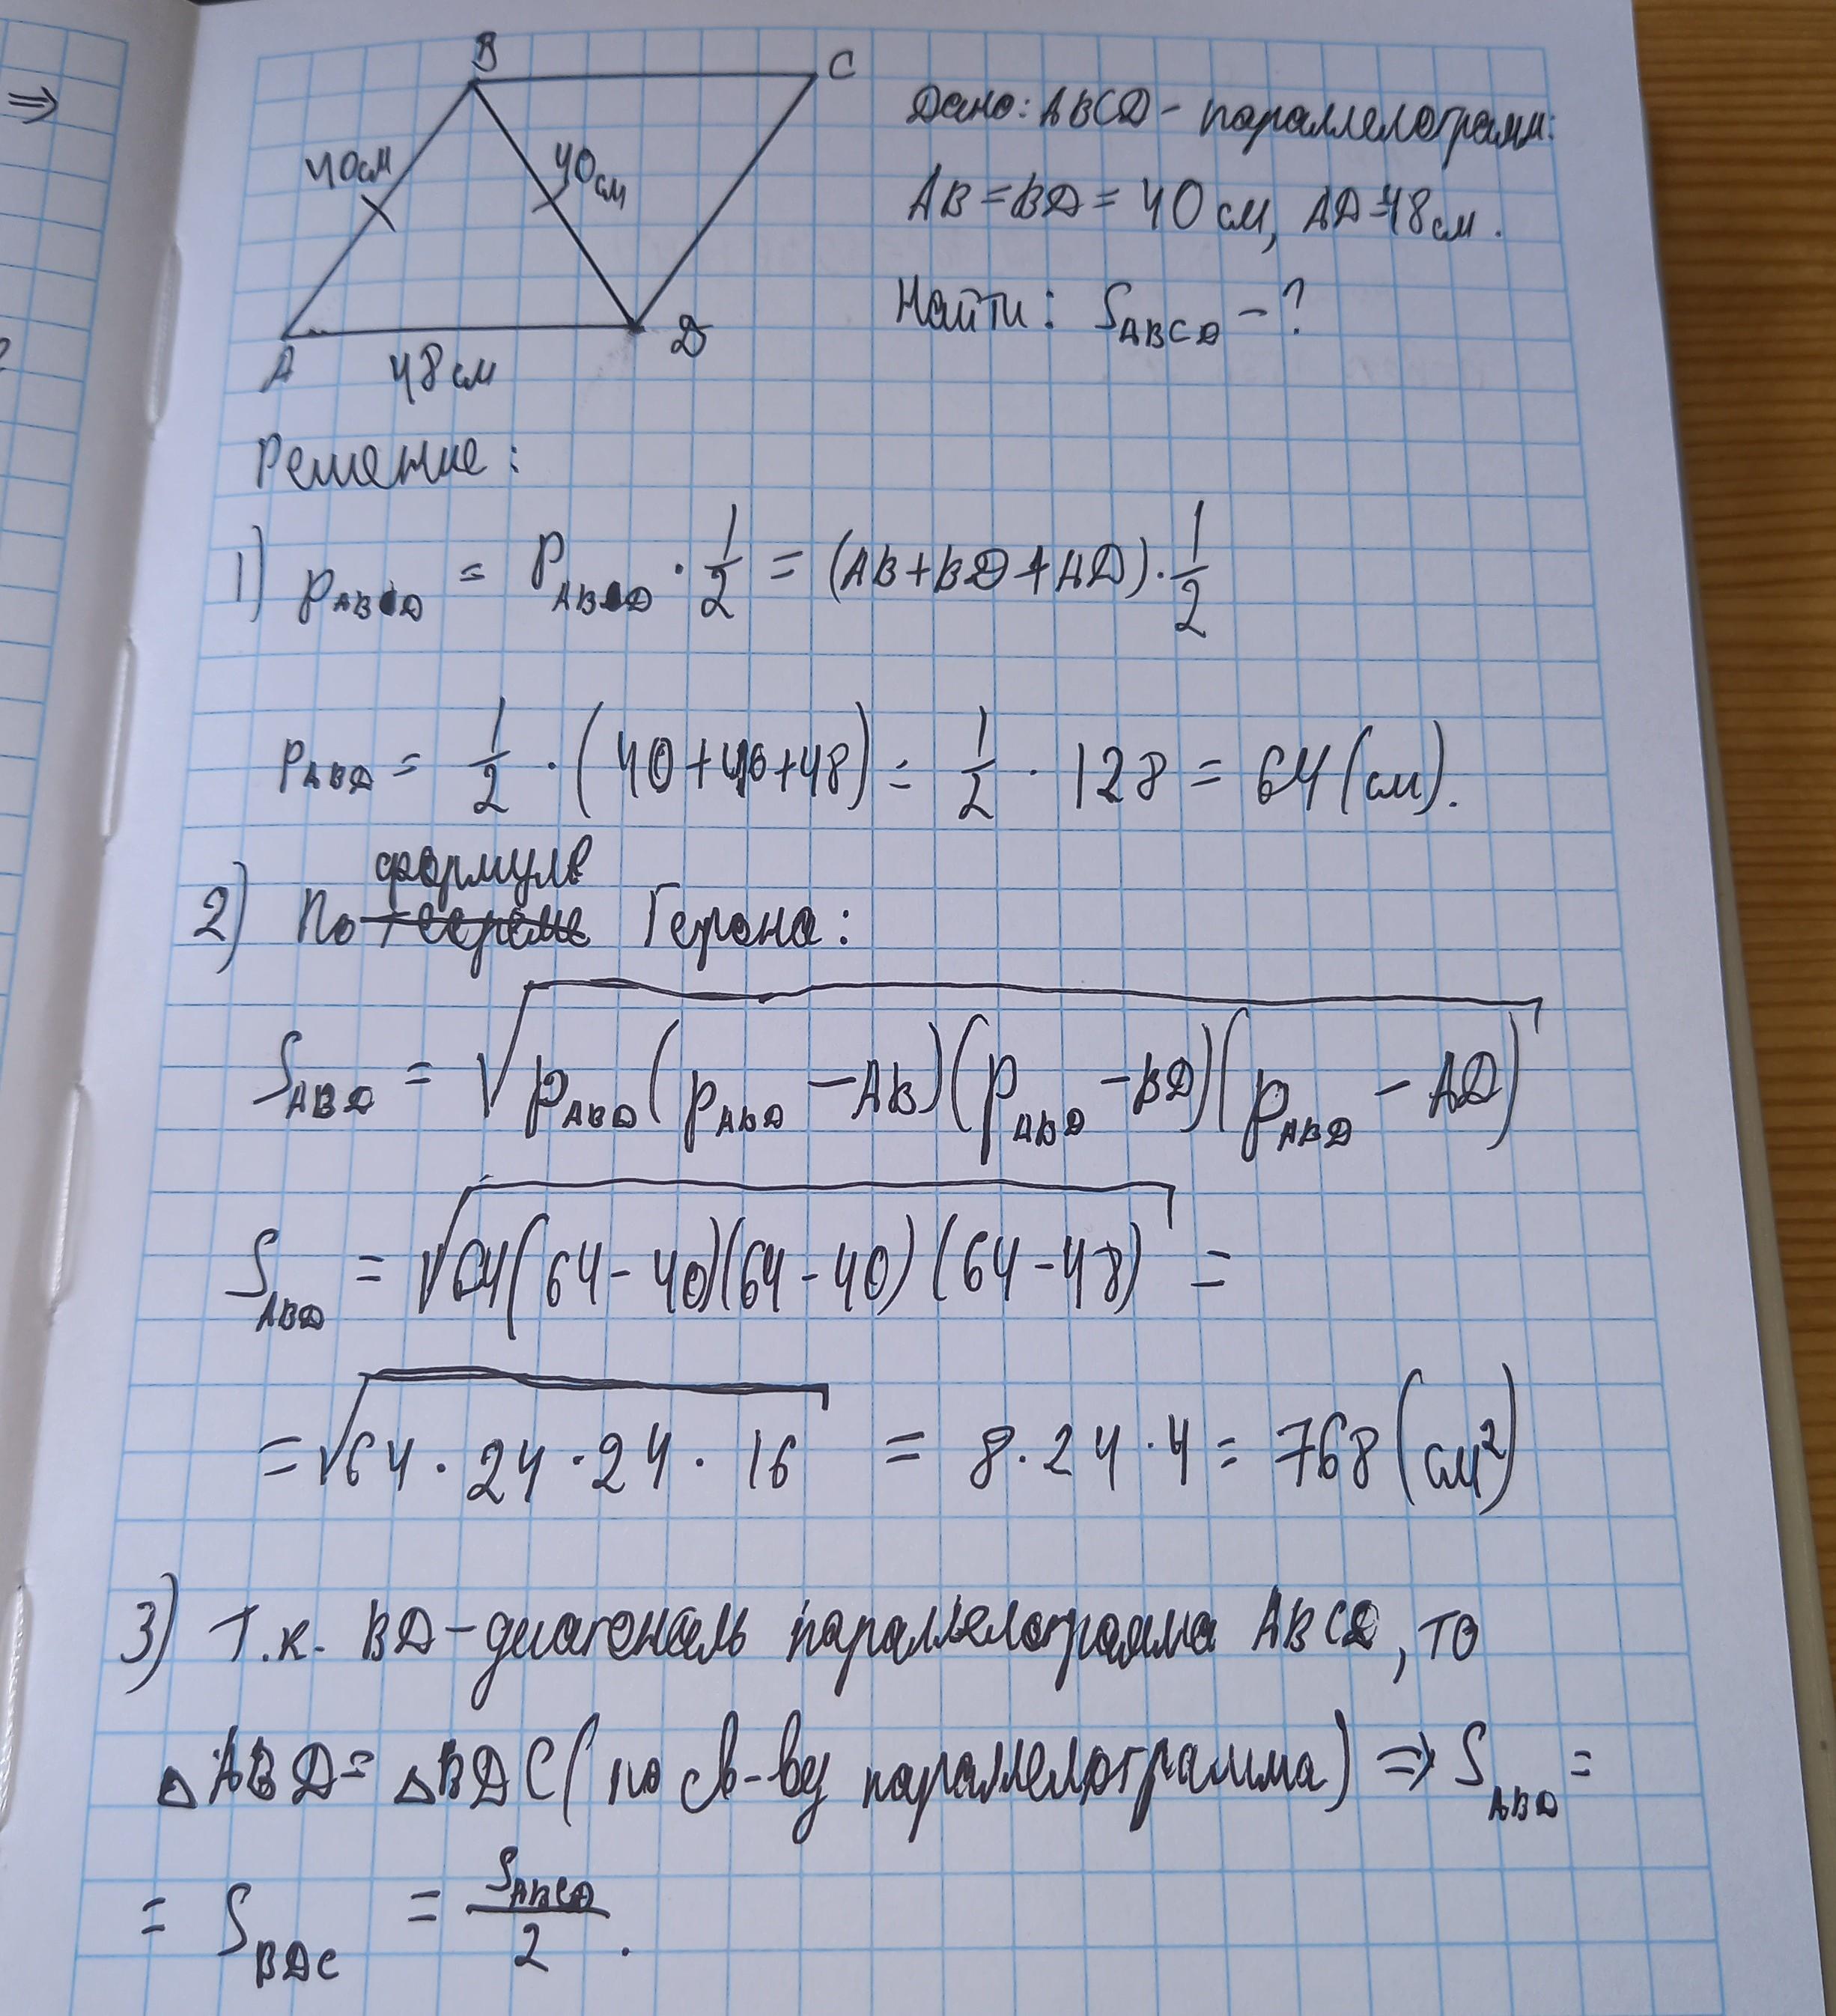 ⇒
B
C
40см
40см
A
48см
D
Дано: ABCD – параллелограмм:
AB = BD = 40 см, AD=48см.
Найти: S_ABCD – ?
Решение:
1) p_ABD = P_ABD · 1/2 = (AB + BD + AD) · 1/2
p_ABD = 1/2 · (40+40+48) = 1/2 · 128 = 64 (см).
формуле
2) По теореме Герона:
S_ABD = √(p_ABD (p_ABD – AB)(p_ABD – BD)(p_ABD – AD))
S_ABD = √(64(64-40)(64-40)(64-48)) =
= √(64 · 24 · 24 · 16) = 8 · 24 · 4 = 768 (см²)
3) Т.к. BD – диагональ параллелограмма ABCD, то
△ABD = △BDC (по св-ву параллелограмма) ⇒ S_ABD =
= S_BDC = S_ABCD/2 .